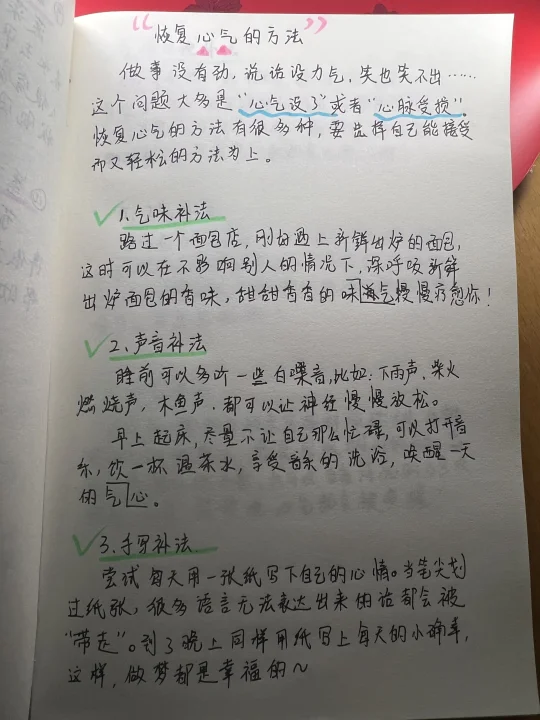 “恢复心气的方法”
做事没有劲，说话没力气，笑也笑不出……
这个问题大多是“心气没了”或者“心脉受损”。
恢复心气的方法有很多种，要选择自己能接受
而又轻松的方法为上。
1.气味补法
路过一个面包店，刚好遇上新鲜出炉的面包，
这时可以在不影响别人的情况下，深呼吸新鲜
出炉面包的香味，甜甜香香的味道气慢慢疗愈你！
2.声音补法
睡前可以多听一些白噪音，比如：下雨声、柴火
燃烧声，木鱼声，都可以让神经慢慢放松。
早上起床，尽量不让自己那么忙碌，可以打开音
乐，饮一杯温茶水，享受音乐的洗浴，唤醒一天
的气心。
3.手写补法
尝试每天用一张纸写下自己的心情。当笔尖划
过纸张，很多语言无法表达出来的话都会被
“带走”。到了晚上同样用纸写上每天的小确幸，
这样，做梦都是幸福的～